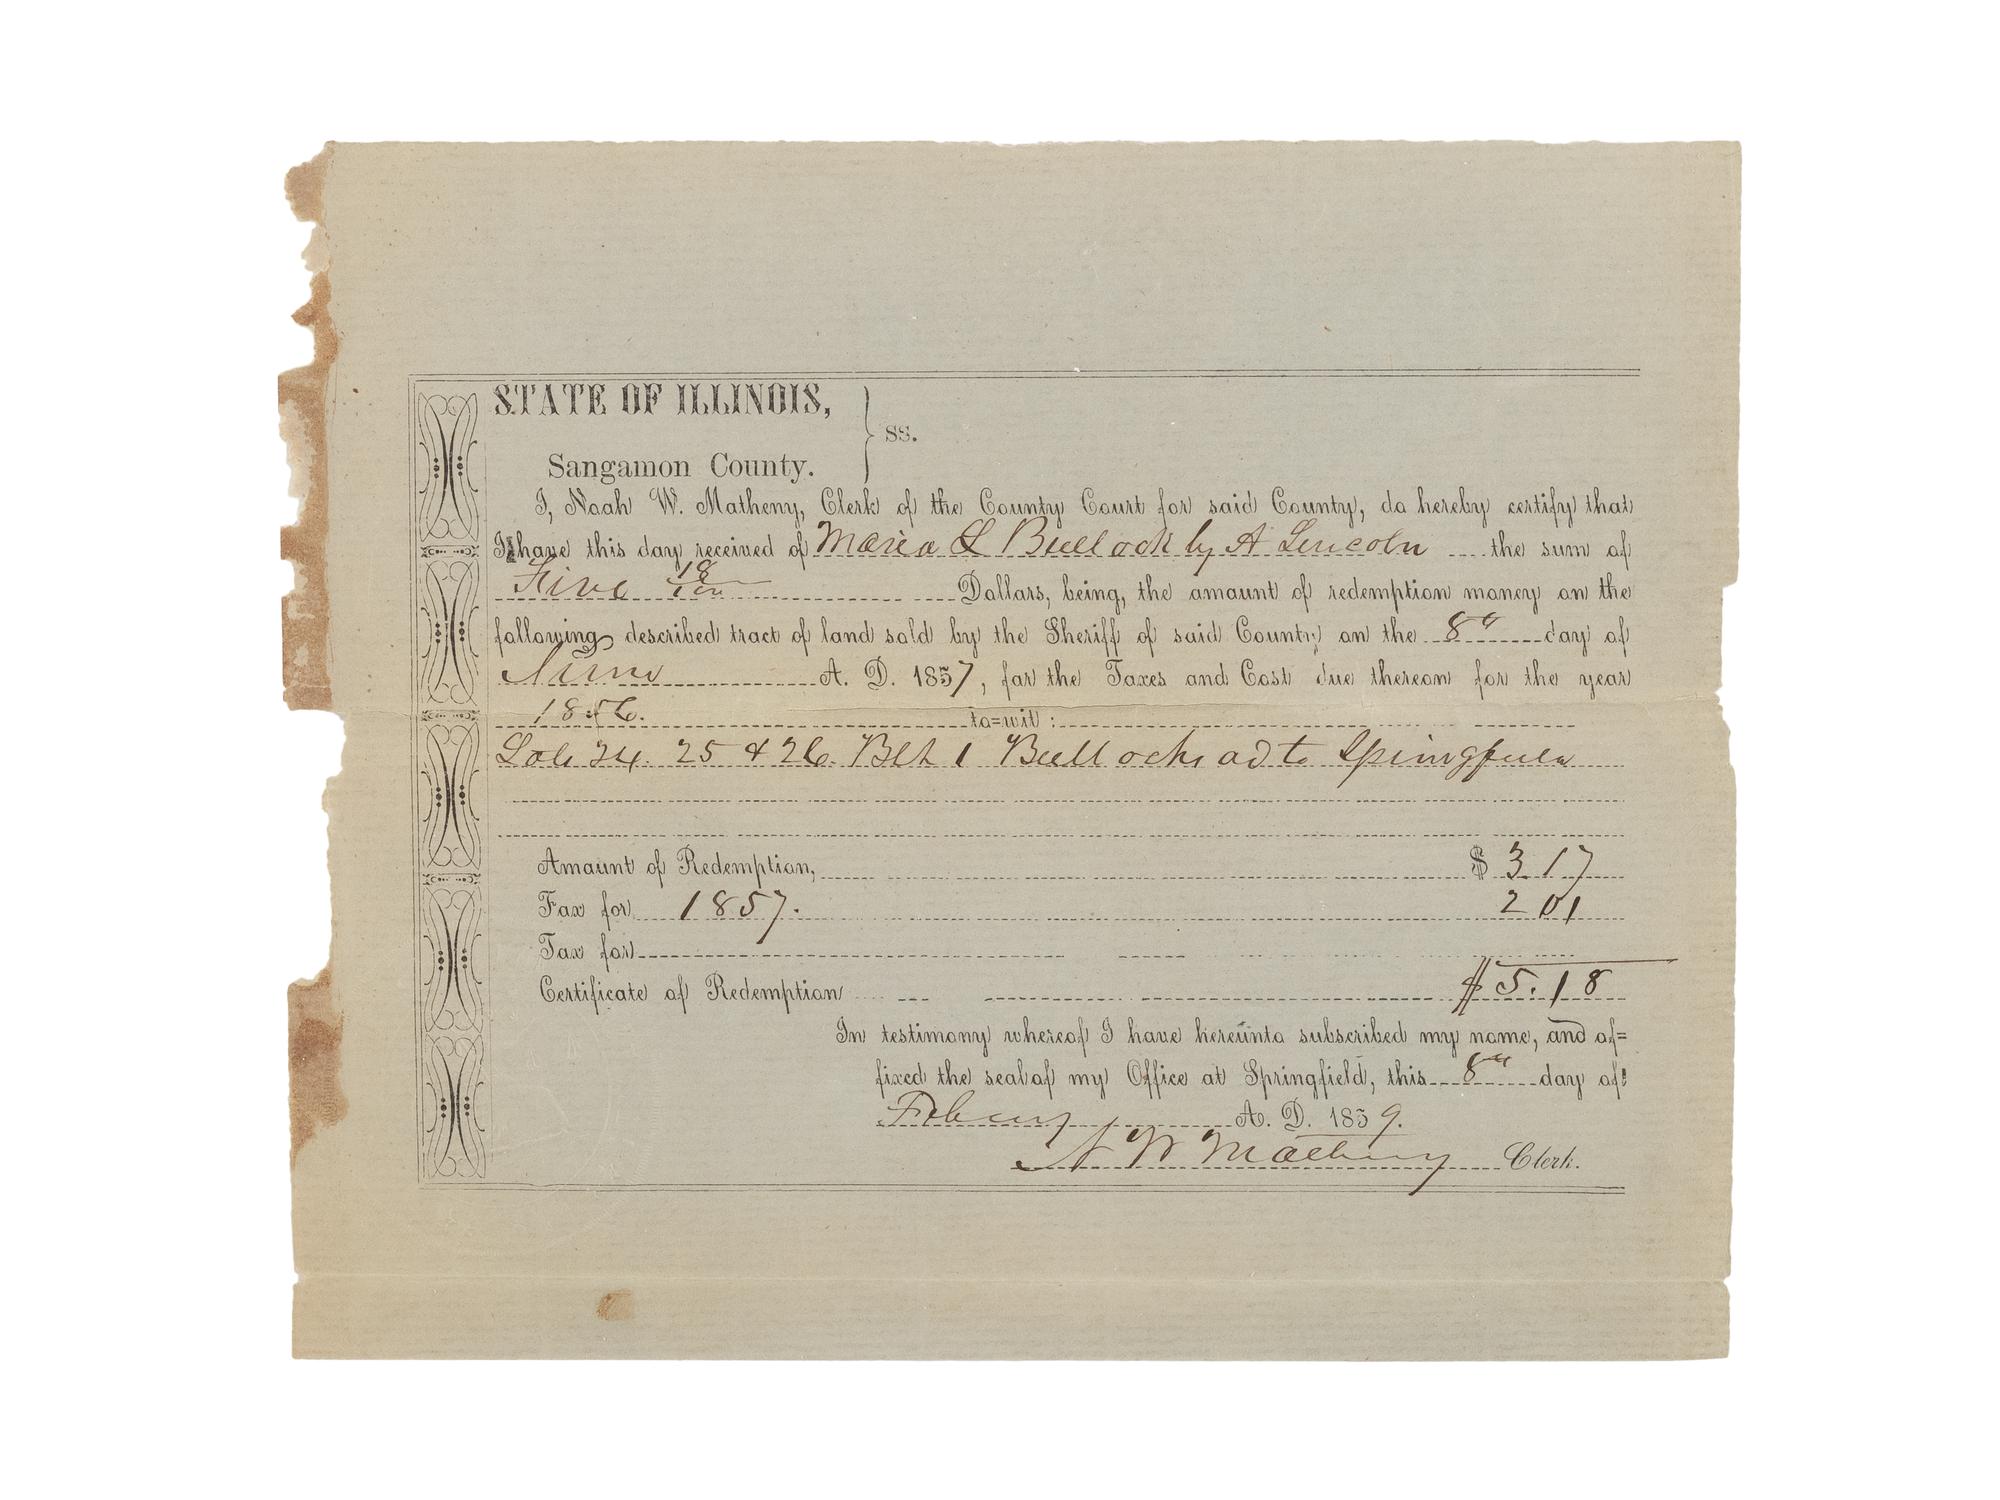 STATE OF ILLINOIS,
ss.
Sangamon County.
I, Noah W. Matheny, Clerk of the County Court for said County, do hereby certify that
I have this day received of Maria L Bullock by A Lincoln the sum of
Five 18/100 Dollars, being, the amount of redemption money on the
following described tract of land sold by the Sheriff of said County on the 8" day of
June A. D. 1857, for the Taxes and Cost due thereon for the year
1856. to=wit:
Lots 24. 25 & 26. Blk 1 Bullocks ad to Springfield
Amount of Redemption, $ 3.17
Tax for 1857. 2 01
Tax for
Certificate of Redemption $5.18
In testimony whereof I have hereunto subscribed my name, and af=
fixed the seal of my Office at Springfield, this 8" day of
Februy A. D. 1859.
N W Matheny Clerk.